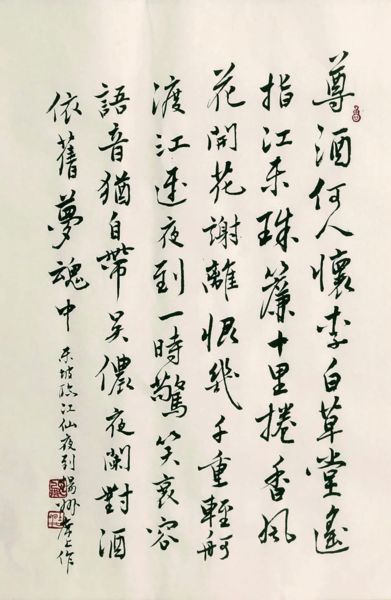 尊酒何人懷李白草堂遙
指江東珠簾十里捲香風
花開花謝離恨幾千重輕舸
渡江連夜到一時驚笑衰容
語音猶自帶吳儂夜闌對酒
依舊夢魂中
東坡臨江仙夜到揚州席上作